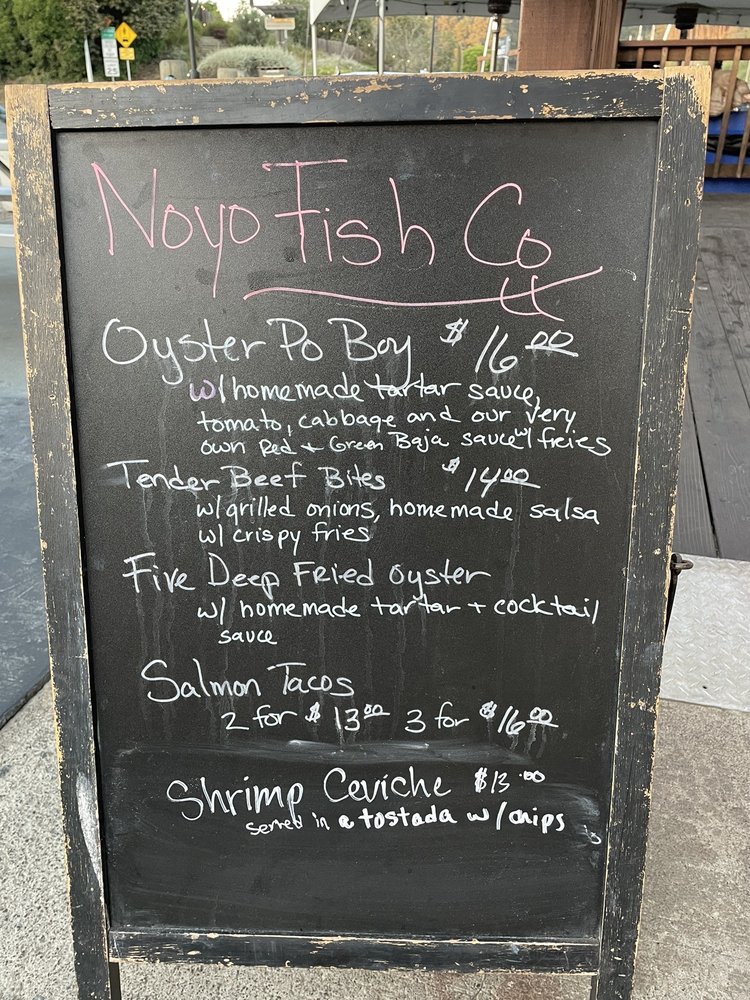 Noyo Fish Co
Oyster Po Boy $16.00
w/homemade tartar sauce,
tomato, cabbage and our very
own Red + Green Baja sauce w/ freies
Tender Beef Bites $14.00
w/grilled onions, homemade salsa
w/ crispy fries
Five Deep Fried Oyster
w/ homemade tartar + cocktail
sauce
Salmon Tacos
2 for $13.00 3 for $16.00
Shrimp Ceviche $13.00
served in a tostada w/chips